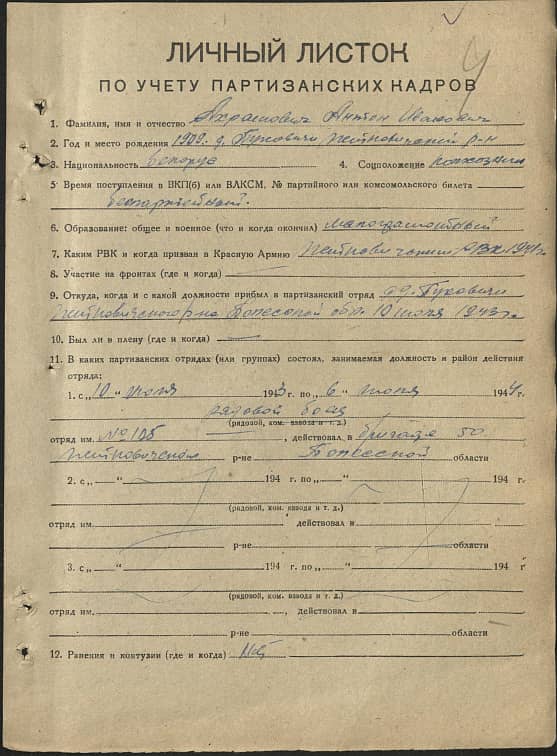 ЛИЧНЫЙ ЛИСТОК
ПО УЧЕТУ ПАРТИЗАНСКИХ КАДРОВ
1. Фамилия, имя и отчество Ахрамович Антон Иванович
2. Год и место рождения 1909. д. Пуховичи Житковичский р-н
3. Национальность белорус 4. Соцположение колхозник
5. Время поступления в ВКП(б) или ВЛКСМ, № партийного или комсомольского билета
беспартейный.
6. Образование: общее и военное (что и когда окончил) малограмотный
7. Каким РВК и когда призван в Красную Армию Житковичским РВК 1941г.
8. Участие на фронтах (где и когда)
9. Откуда, когда и с какой должности прибыл в партизанский отряд д. Пуховичи
Житковичского р-на Полесской обл. 10 июля 1943 г.
10. Был ли в плену (где и когда) —
11. В каких партизанских отрядах (или группах) состоял, занимаемая должность и район действия
отряда:
1. с „10 “ июля 1943 г. по „6 “ июля 1944 г.
рядовой боец
(рядовой, ком. взвода и т. д.)
отряд им. № 105 — , действовал в бригаде 50
Житковичском р-не Полесской области
2. с „ — “ 194 г. по „ — “ 194 г.
(рядовой, ком. взвода и т. д.)
отряд им. действовал в
р-не области
3. с „ — “ 194 г. по „ — “ 194 г
(рядовой, ком. взвода и т. д.)
отряд им. , действовал в
р-не области
12. Ранения и контузии (где и когда) Нет